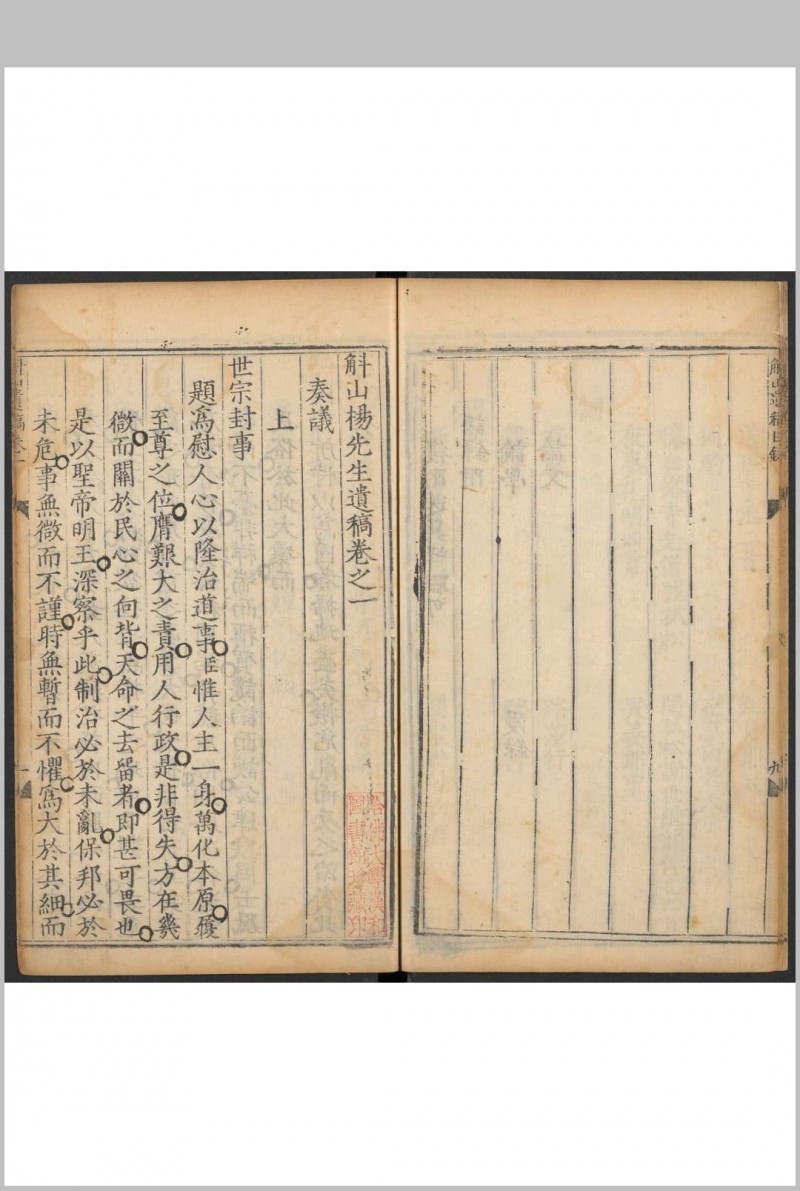 斛山遺稿目錄
九
斛山楊先生遺稿卷之一
奏議
上
世宗封事
題爲慰人心以隆治道事臣惟人主一身萬化本原履
至尊之位膺艱大之責用人行政是非得失方在幾
微而關於民心之向背天命之去留者即甚可畏也
是以聖帝明王深察乎此制治必於未亂保邦必於
未危事無微而不謹時無暫而不懼爲大於其細而
斛山遺稿卷一
一